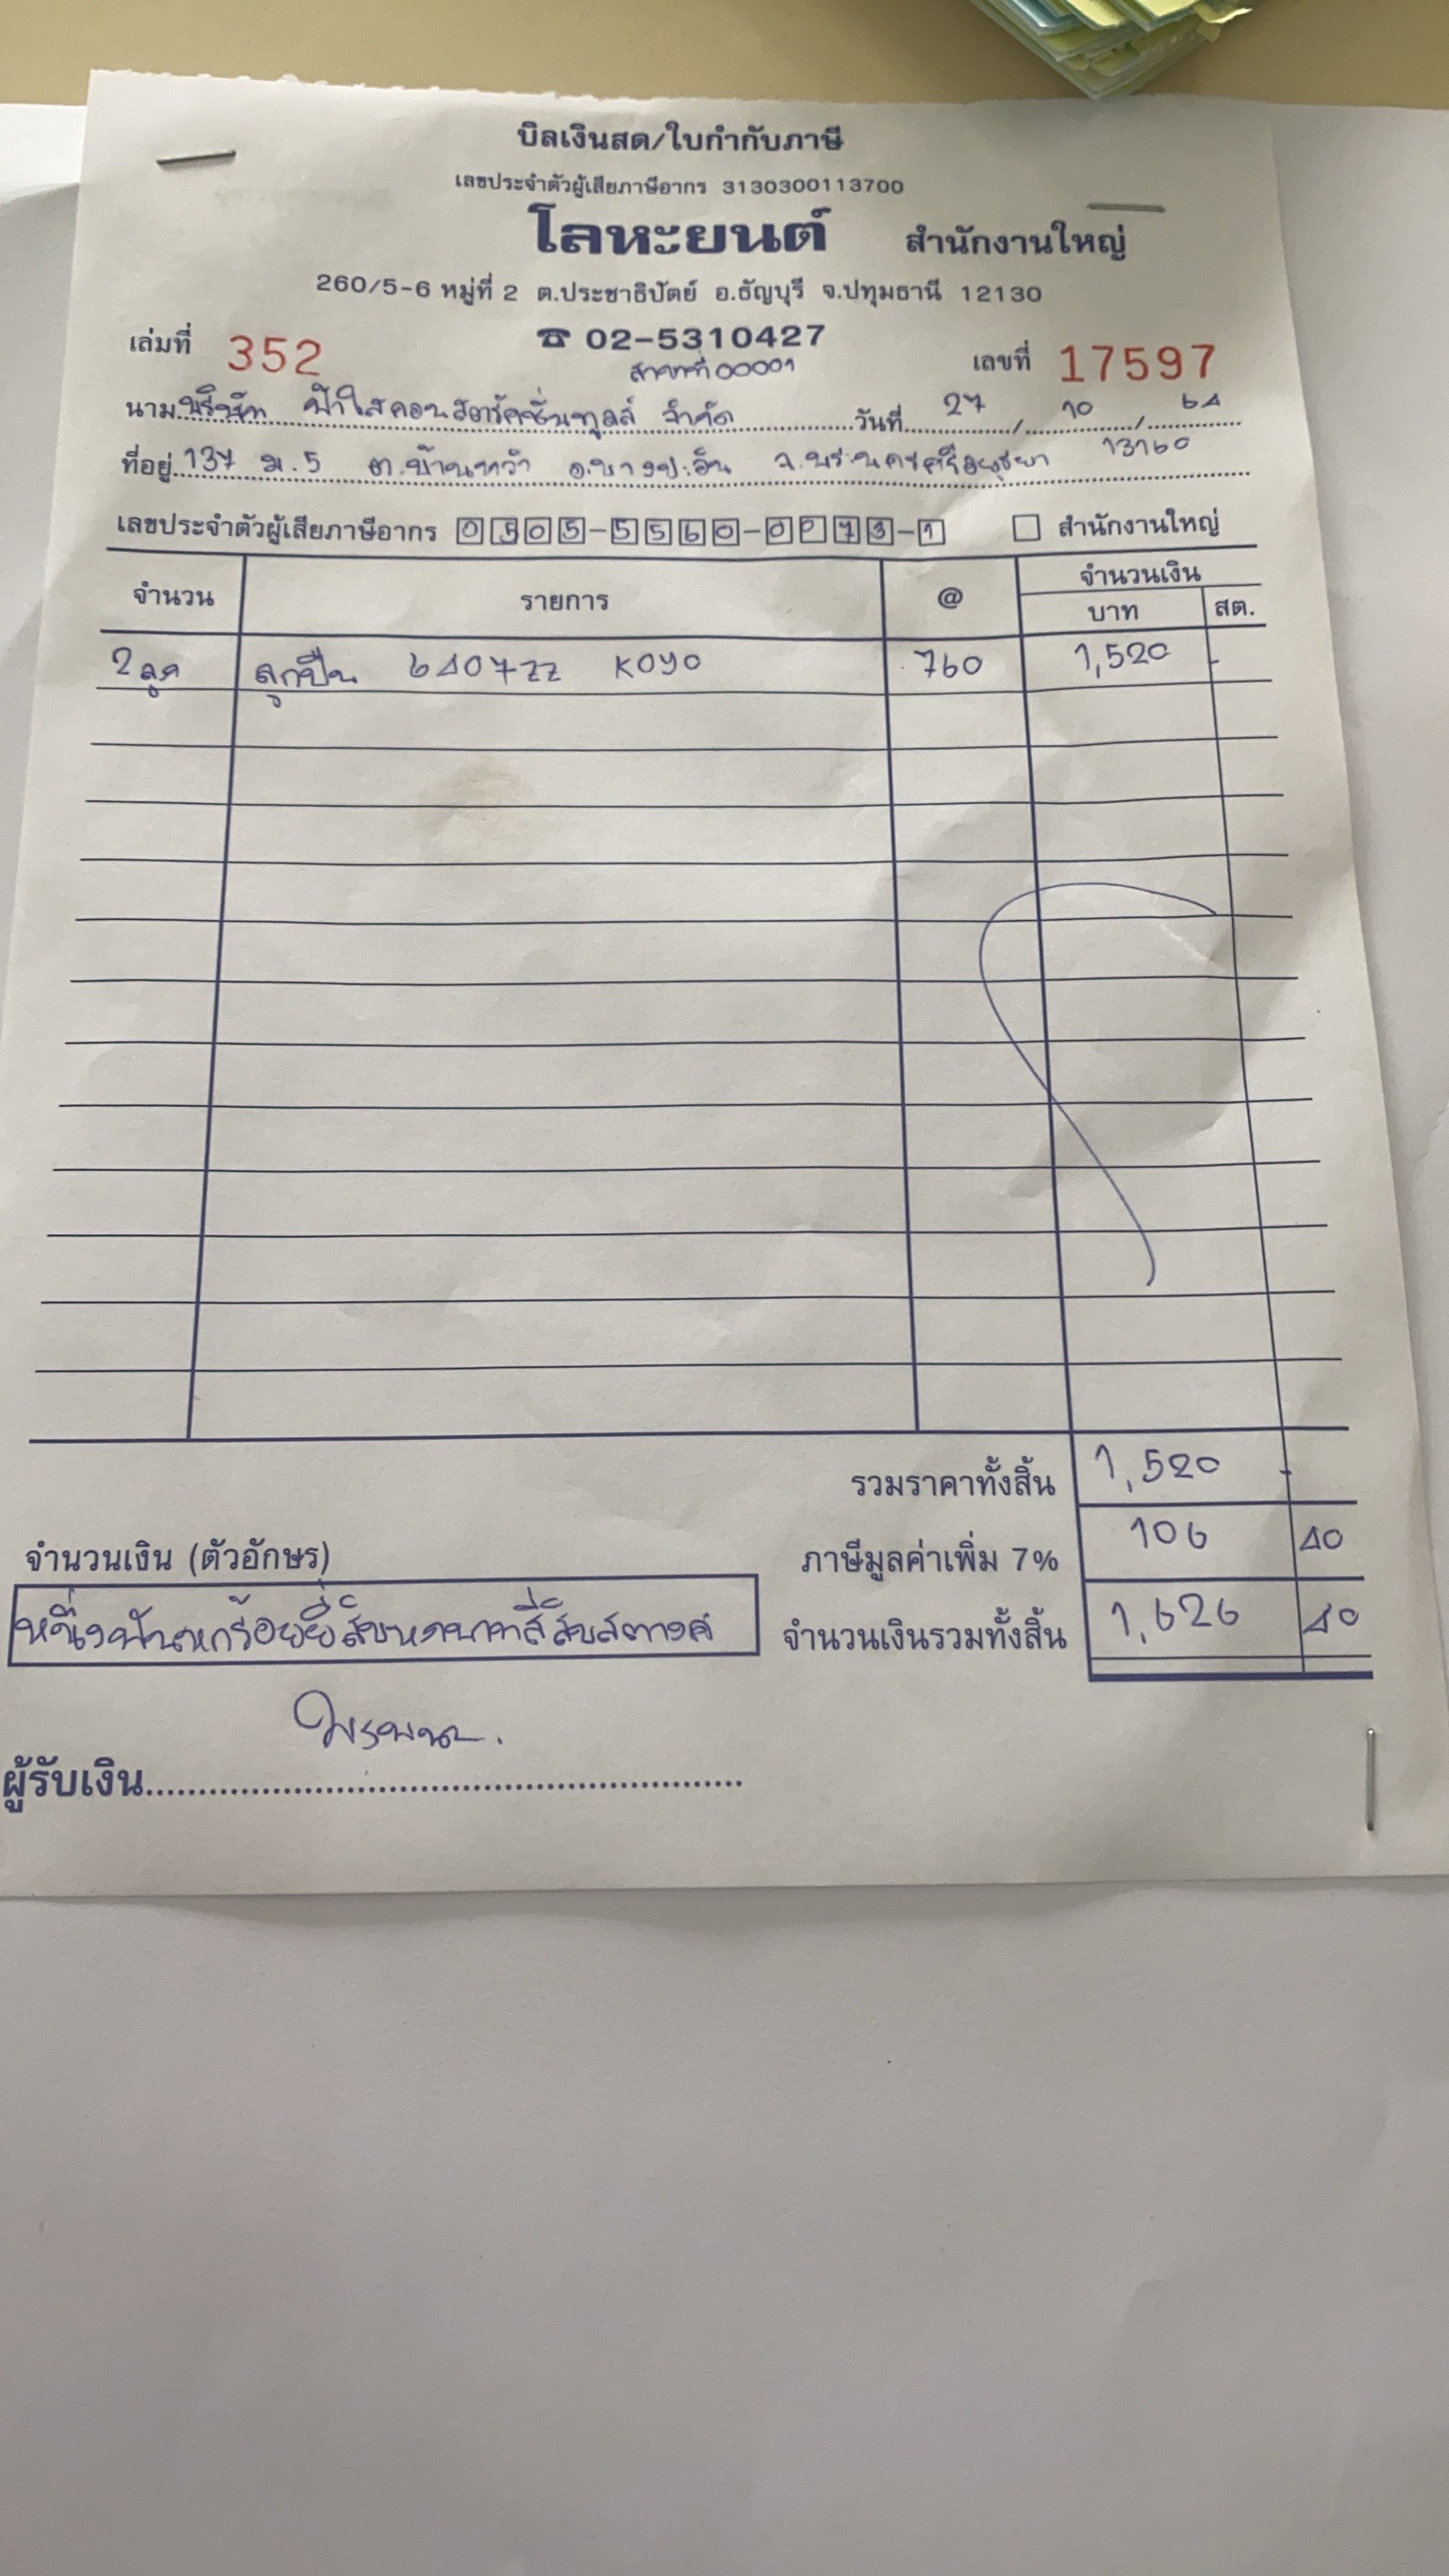 บิลเงินสด/ใบกำกับภาษี
เลขประจำตัวผู้เสียภาษีอากร 3130300113700
โลหะยนต์ สำนักงานใหญ่
260/5-6 หมู่ที่ 2 ต.ประชาธิปัตย์ อ.ธัญบุรี จ.ปทุมธานี 12130
เล่มที่ 352 ☎ 02-5310427 เลขที่ 17597
สาขาที่ 00001
นาม บริษัท ฟ้าใสคอนสตรัคชั่นทูลส์ จำกัด วันที่ 27 / 10 / 64
ที่อยู่ 137 ม.5 ต.บ้านหว้า อ.บางปะอิน จ.พระนครศรีอยุธยา 13160
เลขประจำตัวผู้เสียภาษีอากร 0 05-5560-0 73-1 สำนักงานใหญ่
จำนวน รายการ @ จำนวนเงิน
บาท สต.
2 ลูก ลูกปืน 6407ZZ KOYO 760 1,520 -
รวมราคาทั้งสิ้น 1,520 -
จำนวนเงิน (ตัวอักษร) ภาษีมูลค่าเพิ่ม 7% 106 40
หนึ่งพันหกร้อยยี่สิบหกบาทสี่สิบสตางค์ จำนวนเงินรวมทั้งสิ้น 1,626 40
ผู้รับเงิน